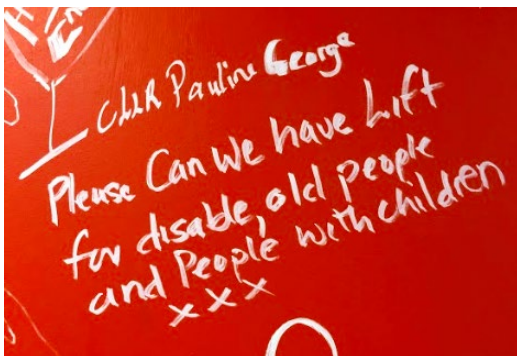 - CLLR Pauline George
Please Can We have Lift
for disable, old people
and People with children
x x x